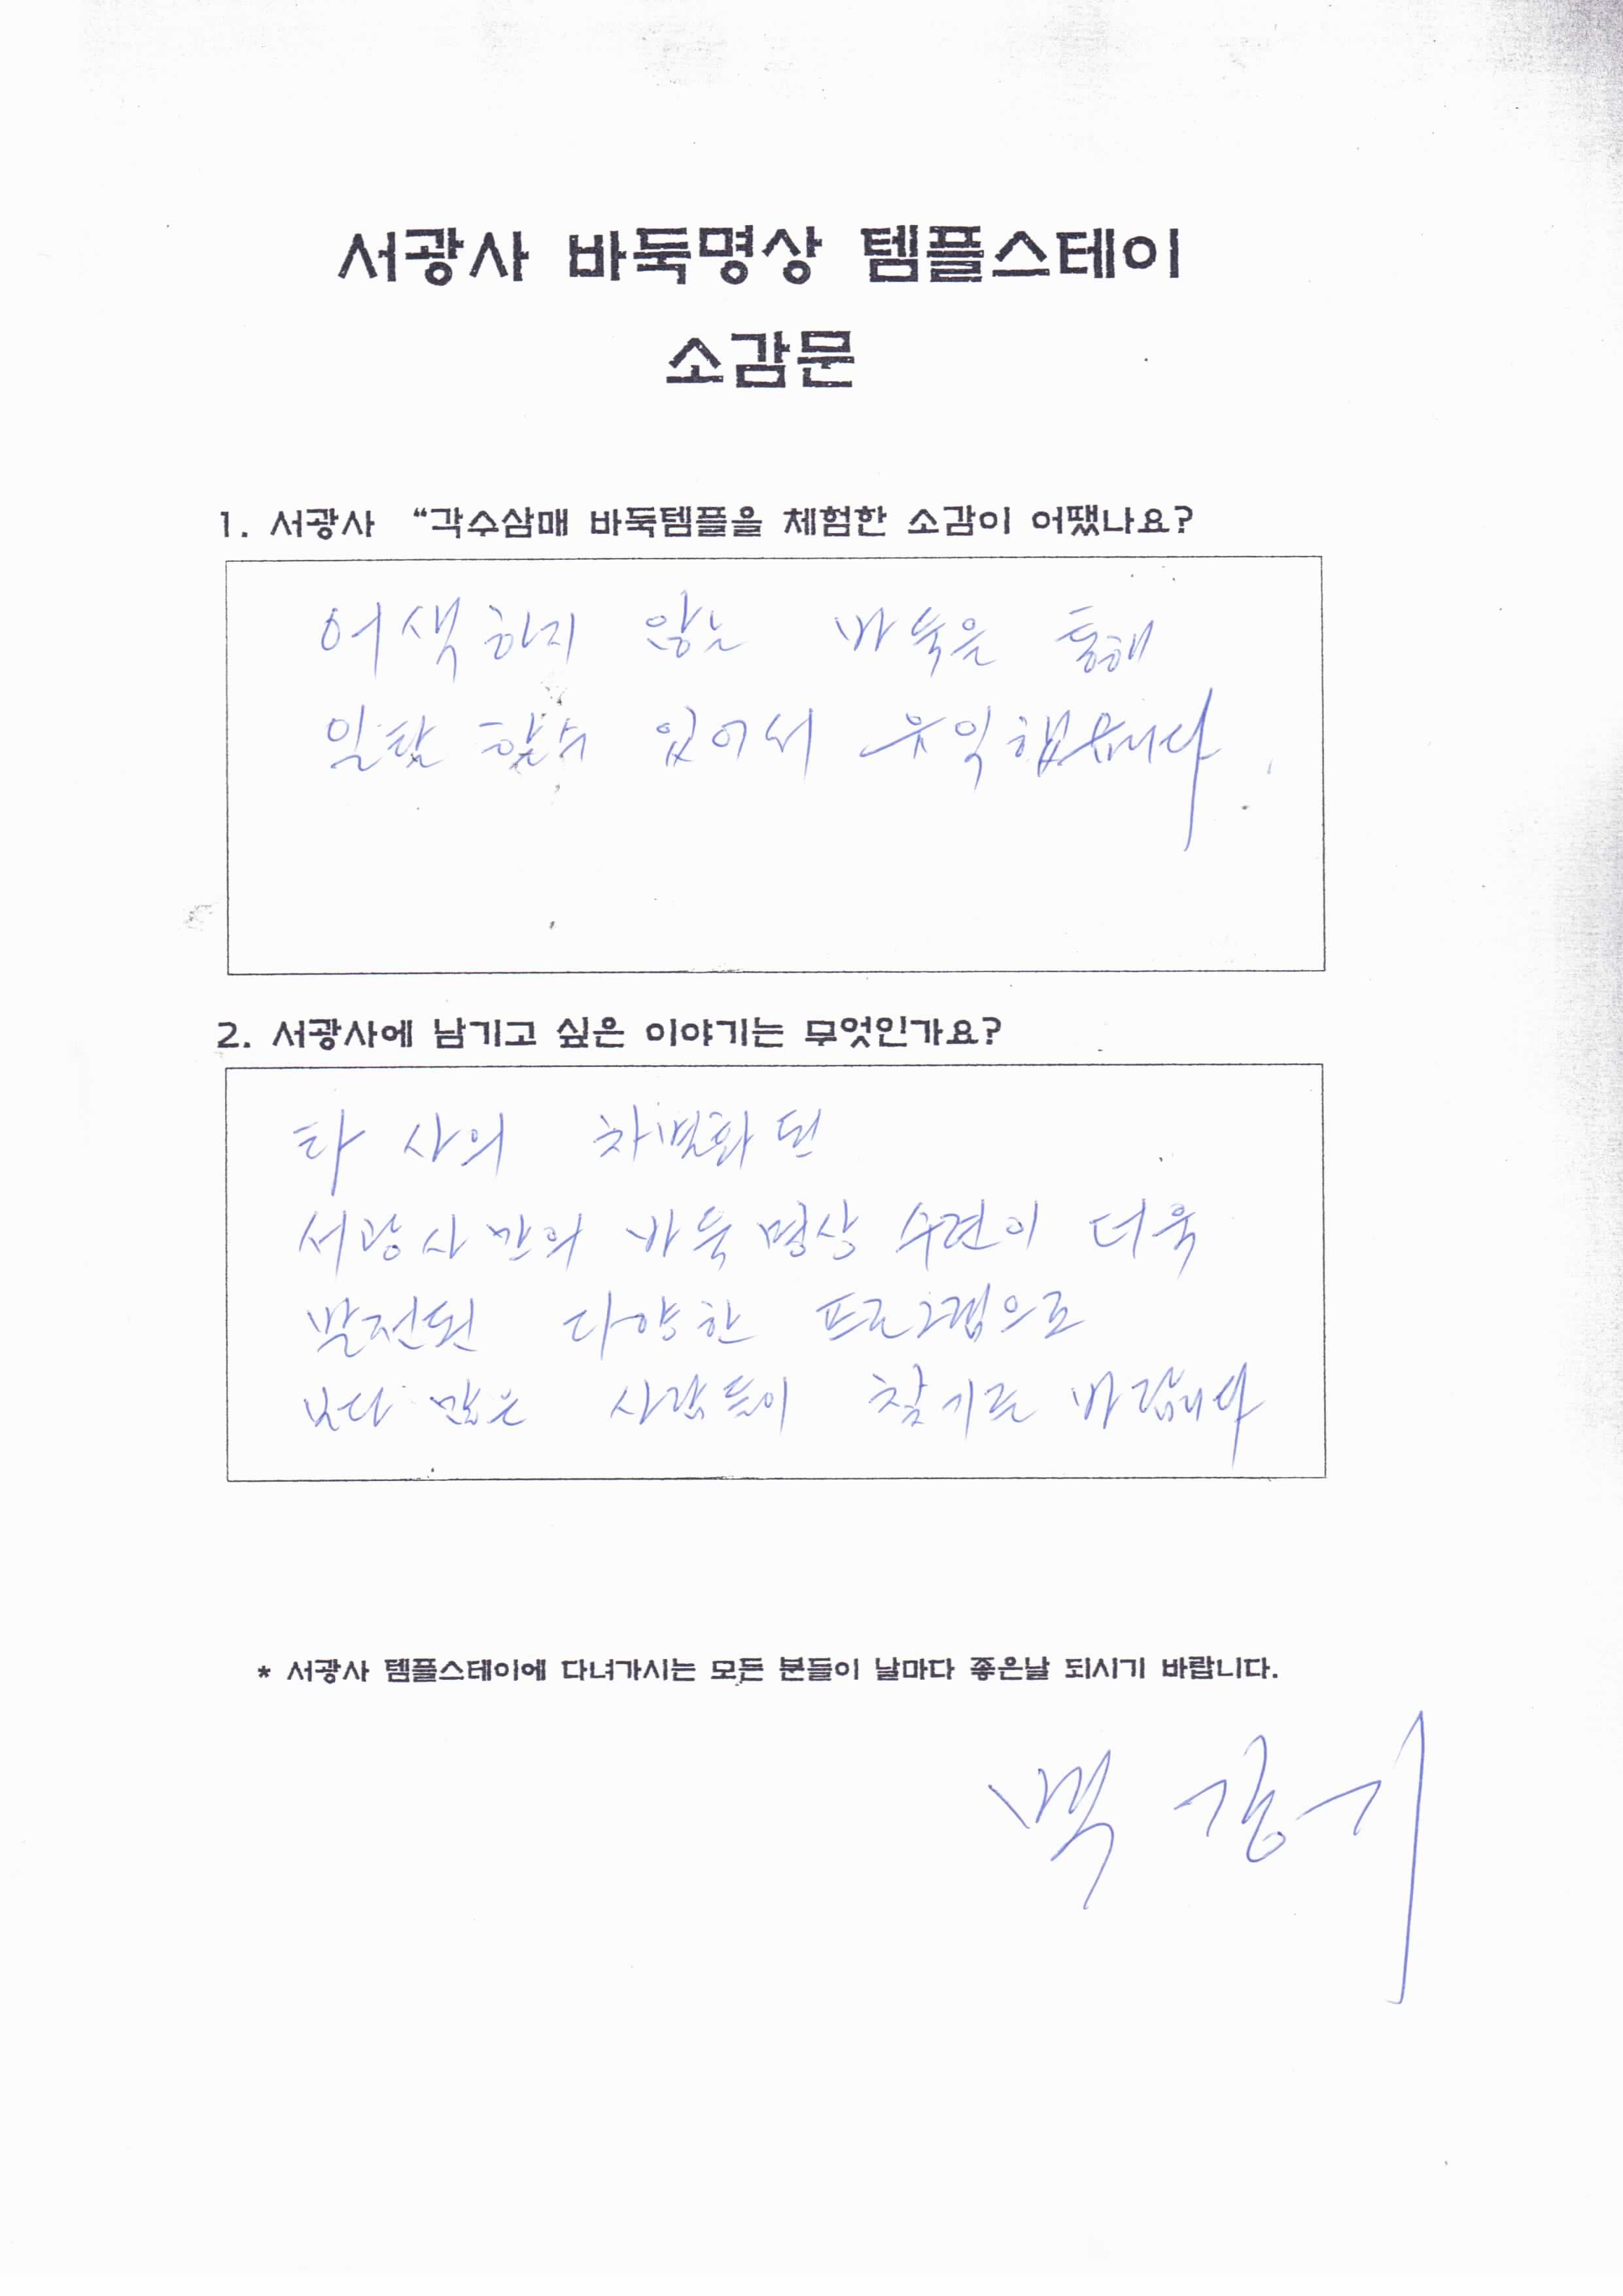 서광사 바둑명상 템플스테이
소감문
1. 서광사 “각수삼매 바둑템플을 체험한 소감이 어땠나요?
어색하지 않는 바둑은 통해
일탈 할수 있어서 유익했습니다.
2. 서광사에 남기고 싶은 이야기는 무엇인가요?
타 사의 차별화된
서광사만의 바둑 명상 수련이 더욱
발전된 다양한 프로그램으로
보다 많은 사람들이 찾기를 바랍니다
* 서광사 템플스테이에 다녀가시는 모든 분들이 날마다 좋은날 되시기 바랍니다.